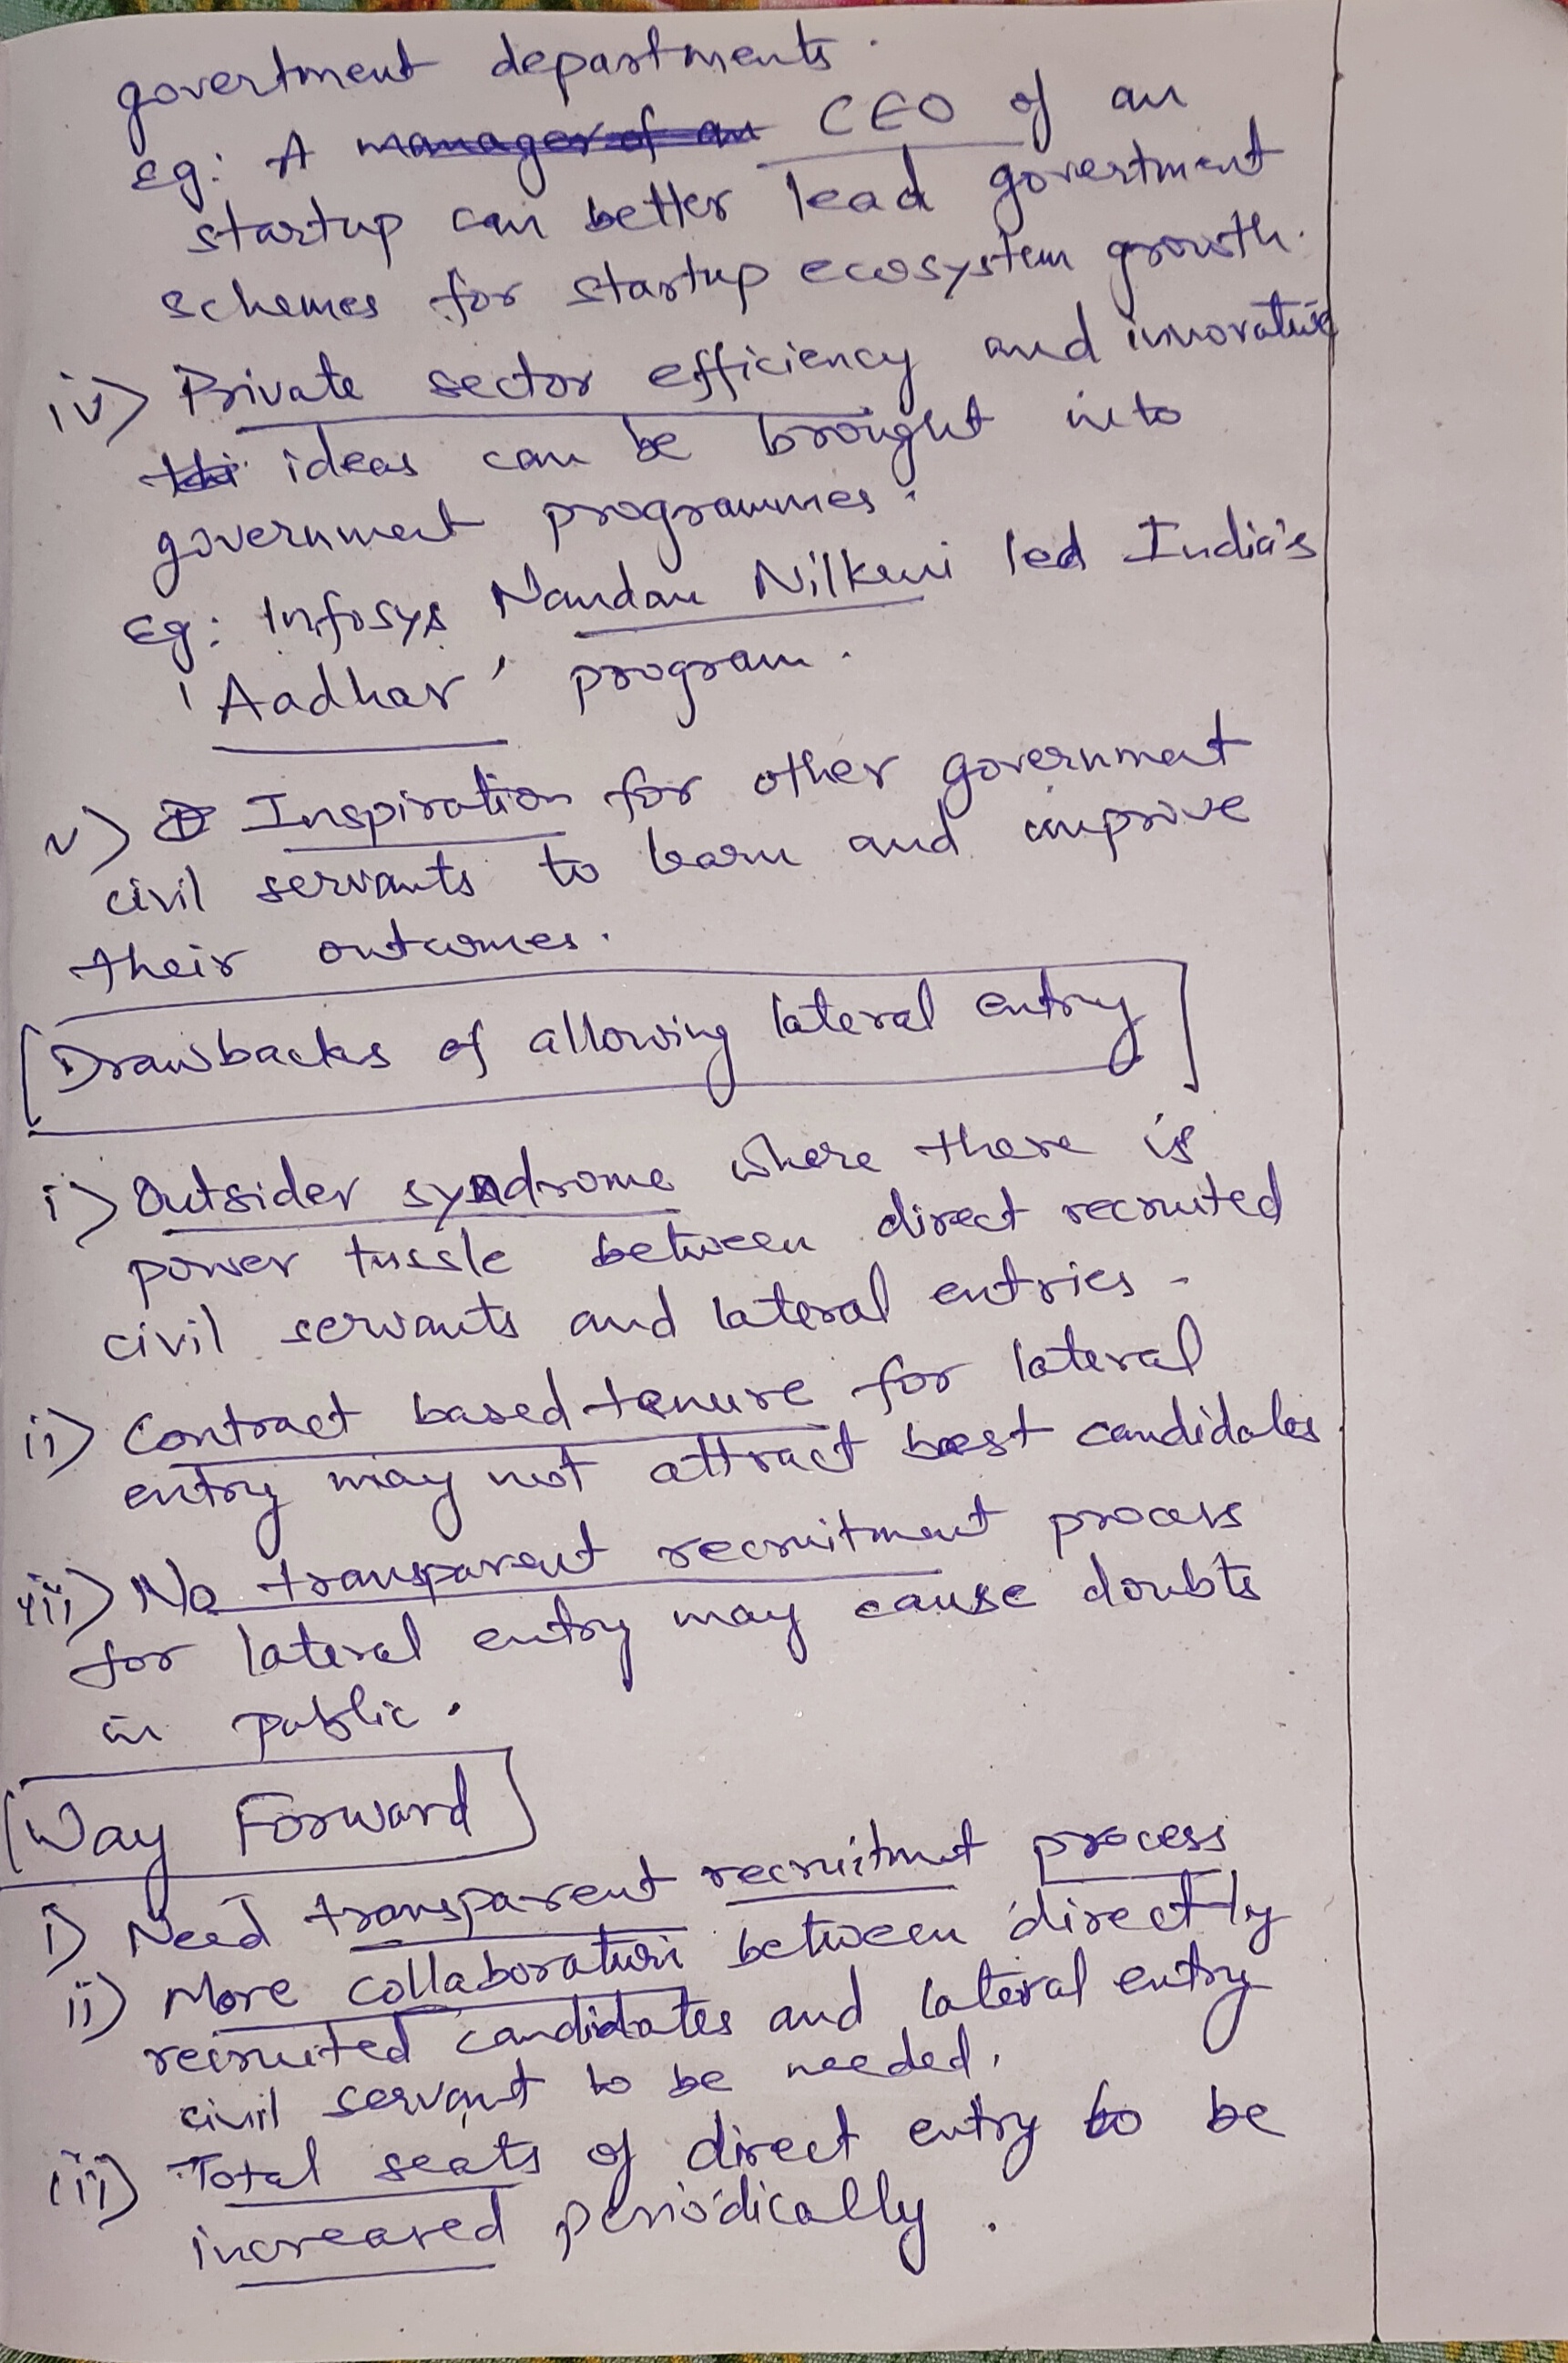 govertment departments.
Eg: A CEO of an
startup can better lead govertment
schemes for startup ecosystem growth.
iv) Private sector efficiency and innovative
ideas can be brought into
government programmes.
Eg: Infosys Nandan Nilkeni led India's
'Aadhar' program.
v) Inspiration for other government
civil servants to learn and improve
their outcomes.
Drawbacks of allowing lateral entry
i) Outsider syndrome where there is
power tussle between direct recruited
civil servants and lateral entries.
ii) Contract based tenure for lateral
entry may not attract best candidates.
iii) No transparent recruitment process
for lateral entry may cause doubts
in public.
Way Forward
i) Need transparent recruitmet process
ii) More collaboration between directly
recruited candidates and lateral entry
civil servant to be needed.
iii) Total seats of direct entry to be
increased periodically.